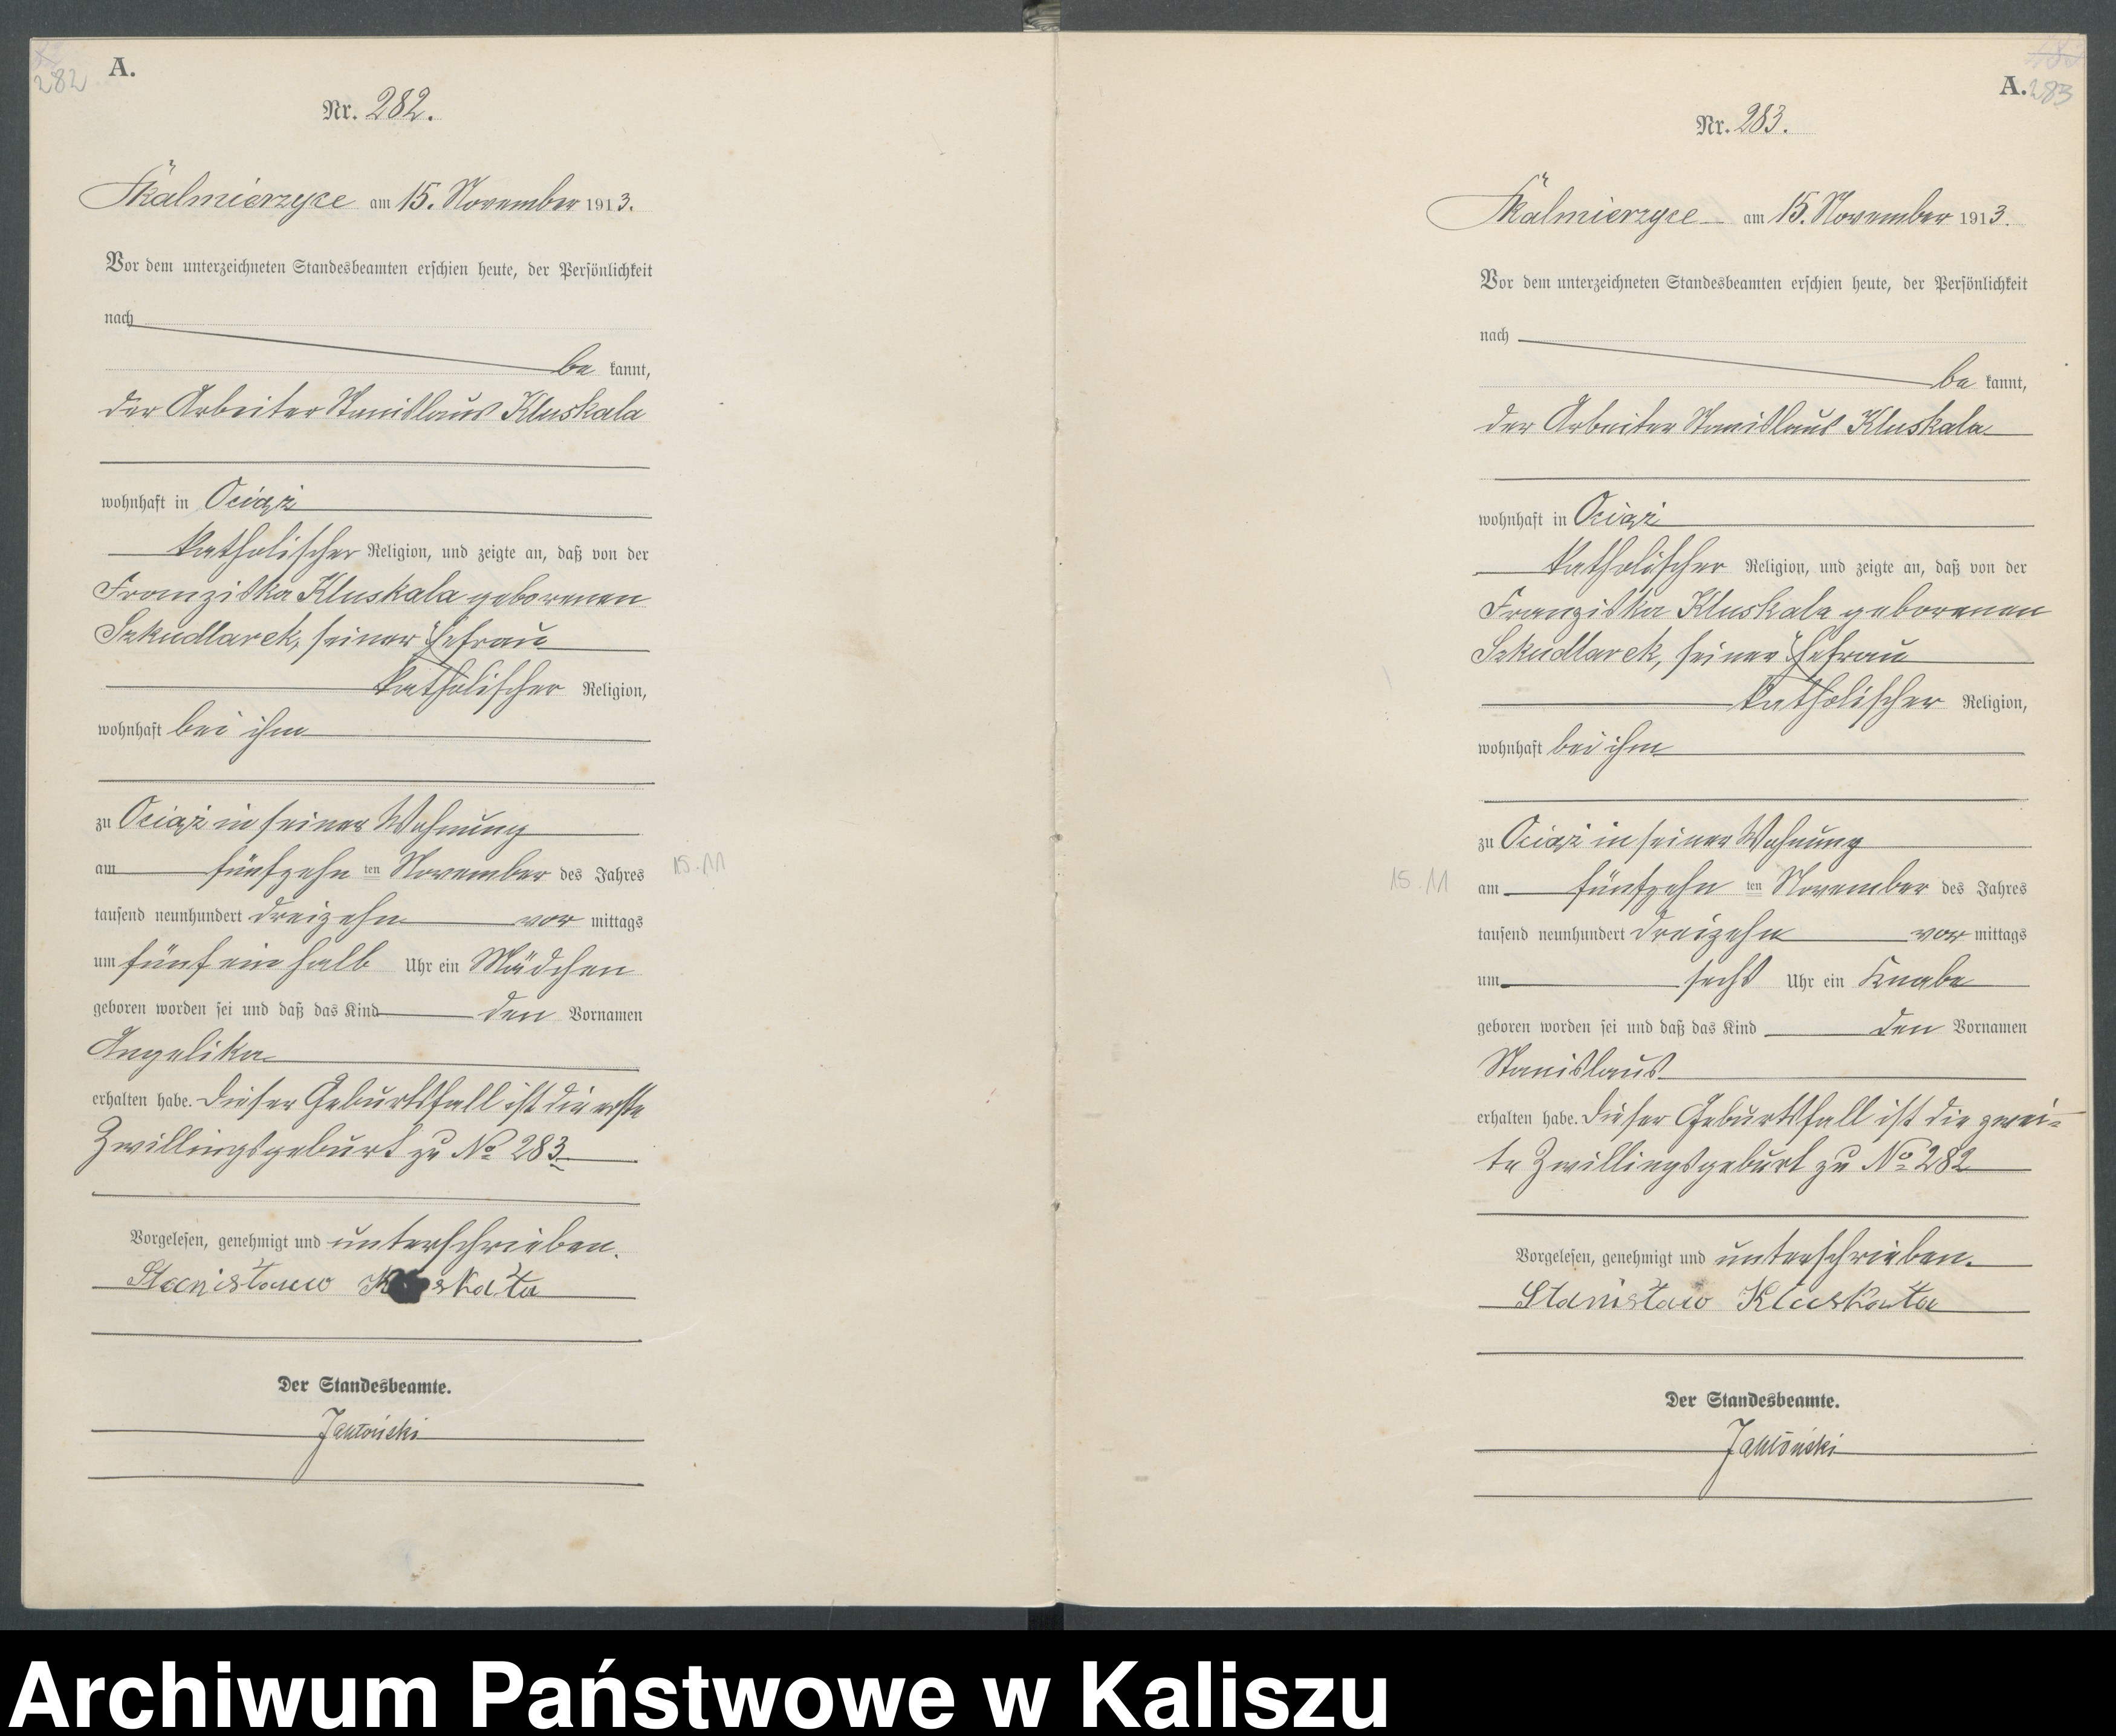 282
A.
Nr. 282.
Skalmierzyce am 15. November 1913.
Vor dem unterzeichneten Standesbeamten erschien heute, der Persönlichkeit
nach
be kannt,
der Arbeiter Stanislaus Kluskala
wohnhaft in Ociąż
katholischer Religion, und zeigte an, daß von der
Franziska Kluskala geborenen
Szkudlarek, seiner Ehefrau
katholischer Religion,
wohnhaft bei ihm
zu Ociąż in seiner Wohnung
am fünfzehn ten November des Jahres
15.11
tausend neunhundert dreizehn vor mittags
um fünf ein halb Uhr ein Mädchen
geboren worden sei und daß das Kind den Vornamen
Angelika
erhalten habe. Dieser Geburtsfall ist die erste
Zwillingsgeburt zu No 283
Vorgelesen, genehmigt und unterschrieben.
Stanisław Kluskała
Der Standesbeamte.
Jabłoński
A. 283
Nr. 283.
Skalmierzyce am 15. November 1913.
Vor dem unterzeichneten Standesbeamten erschien heute, der Persönlichkeit
nach
be kannt,
der Arbeiter Stanislaus Kluskala
wohnhaft in Ociąż
katholischer Religion, und zeigte an, daß von der
Franziska Kluskala geborenen
Szkudlarek, seiner Ehefrau
katholischer Religion,
wohnhaft bei ihm
zu Ociąż in seiner Wohnung
15.11
am fünfzehn ten November des Jahres
tausend neunhundert dreizehn vor mittags
um sechs Uhr ein Knabe
geboren worden sei und daß das Kind den Vornamen
Stanislaus
erhalten habe. Dieser Geburtsfall ist die zwei-
te Zwillingsgeburt zu No 282
Vorgelesen, genehmigt und unterschrieben.
Stanisław Kluskała
Der Standesbeamte.
Jabłoński
Archiwum Państwowe w Kaliszu